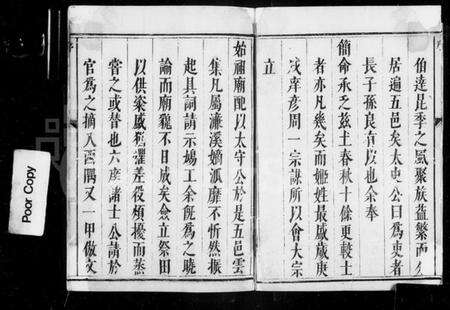 伯達昆季之風聚族益繁而分
居遍五邑矣太史公曰爲吏者
長子孫良有以也余奉
簡命承乏茲土春秋十餘更轂土
者亦凡幾矣而嫗姓最盛歲庚
戌庠彥周一宗謀所以會大宗
立
始祖廟配以太守公於是五邑雲
集凡屬濂溪嫡派靡不忻然振
起具詞請示塲工余旣爲之曉
諭而廟貌不日成矣僉立祭田
以供粢盛猶懼差役煩擾而蒸
嘗之或替也六庠諸士公請於
官爲之摘入西隅又一甲僦文
Poor Copy